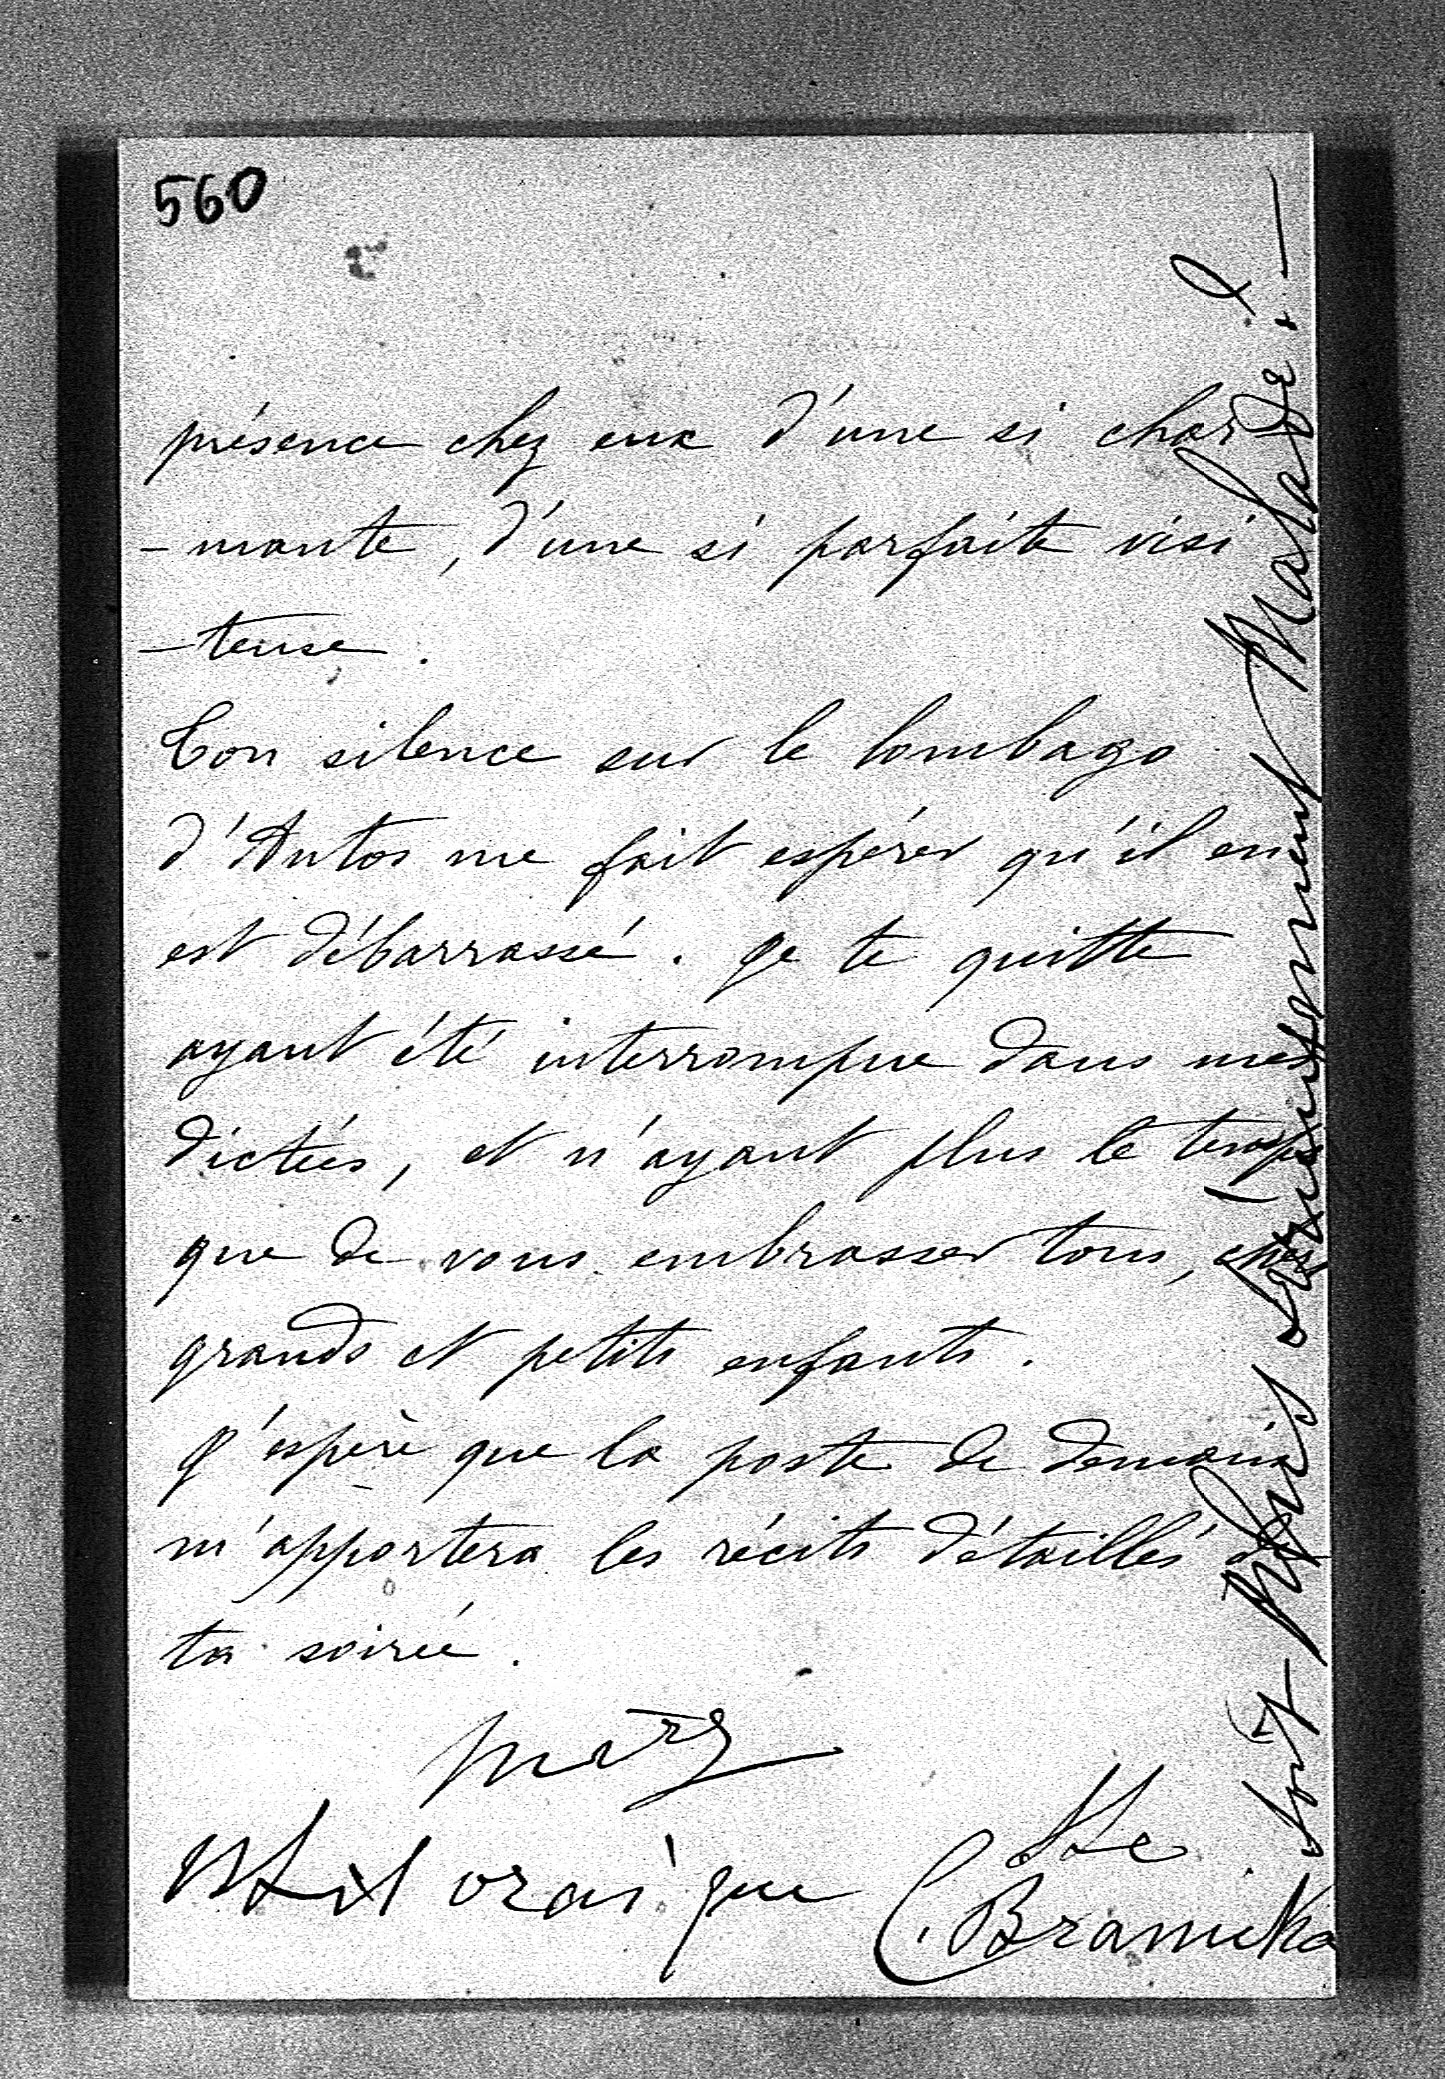 560
présence chez eux d'une si char
-mante, d'une si parfaite visi
-teuse.
Ton silence sur le lombago
d'Antos me fait espérer qu'il en
est débarrassé. Je te quitte
ayant été interrompue dans mes
dictées, et n'ayant plus le temps
que de vous embrasser tous, chers
grands et petits enfants.
J'espère que la poste de demain
m'apportera les récits détaillés de
ta soirée.
est il vrai que
Branicka
soit Malade!